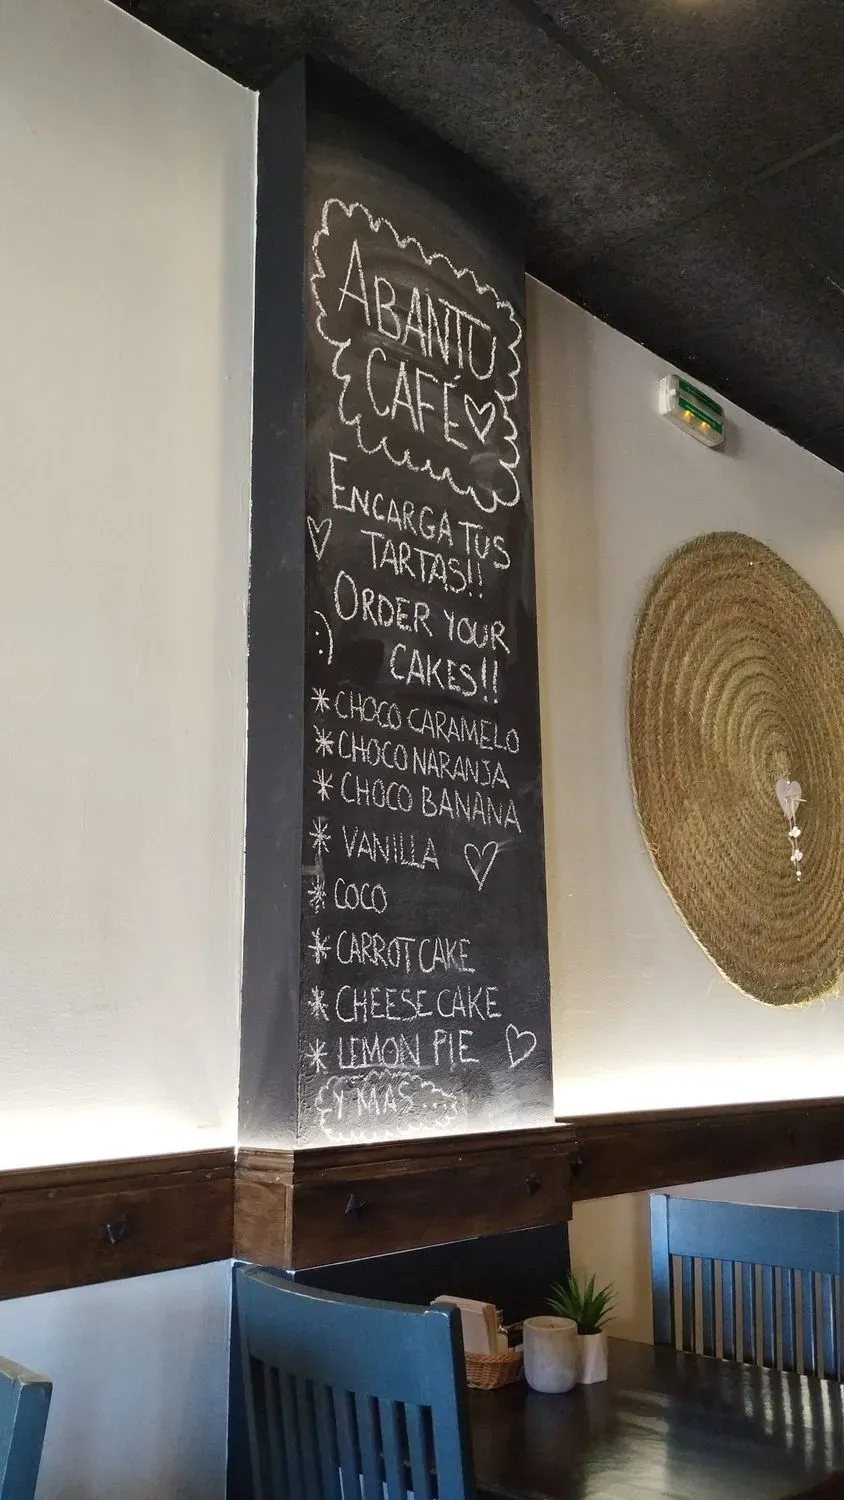 ABANTU
CAFÉ
ENCARGA TUS
TARTAS!!
ORDER YOUR
:) CAKES!!
* CHOCO CARAMELO
* CHOCO NARANJA
* CHOCO BANANA
* VANILLA
* COCO
* CARROT CAKE
* CHEESE CAKE
* LEMON PIE
Y MAS...